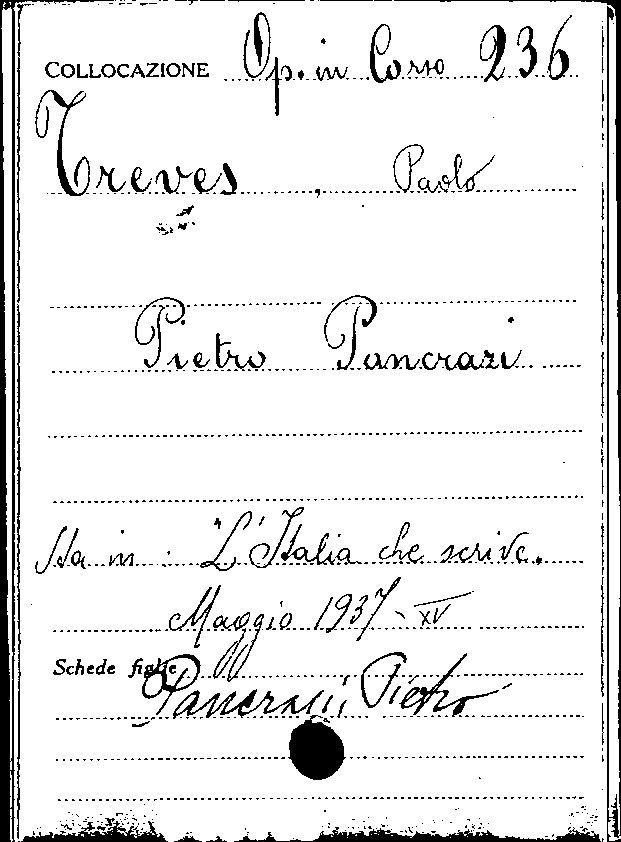 COLLOCAZIONE Op. in Corso 236
Treves, Paolo
Pietro Pancrazi
Sta in: "L'Italia che scrive.
Maggio 1937-XV
Schede figlie
Pancrazi, Pietro